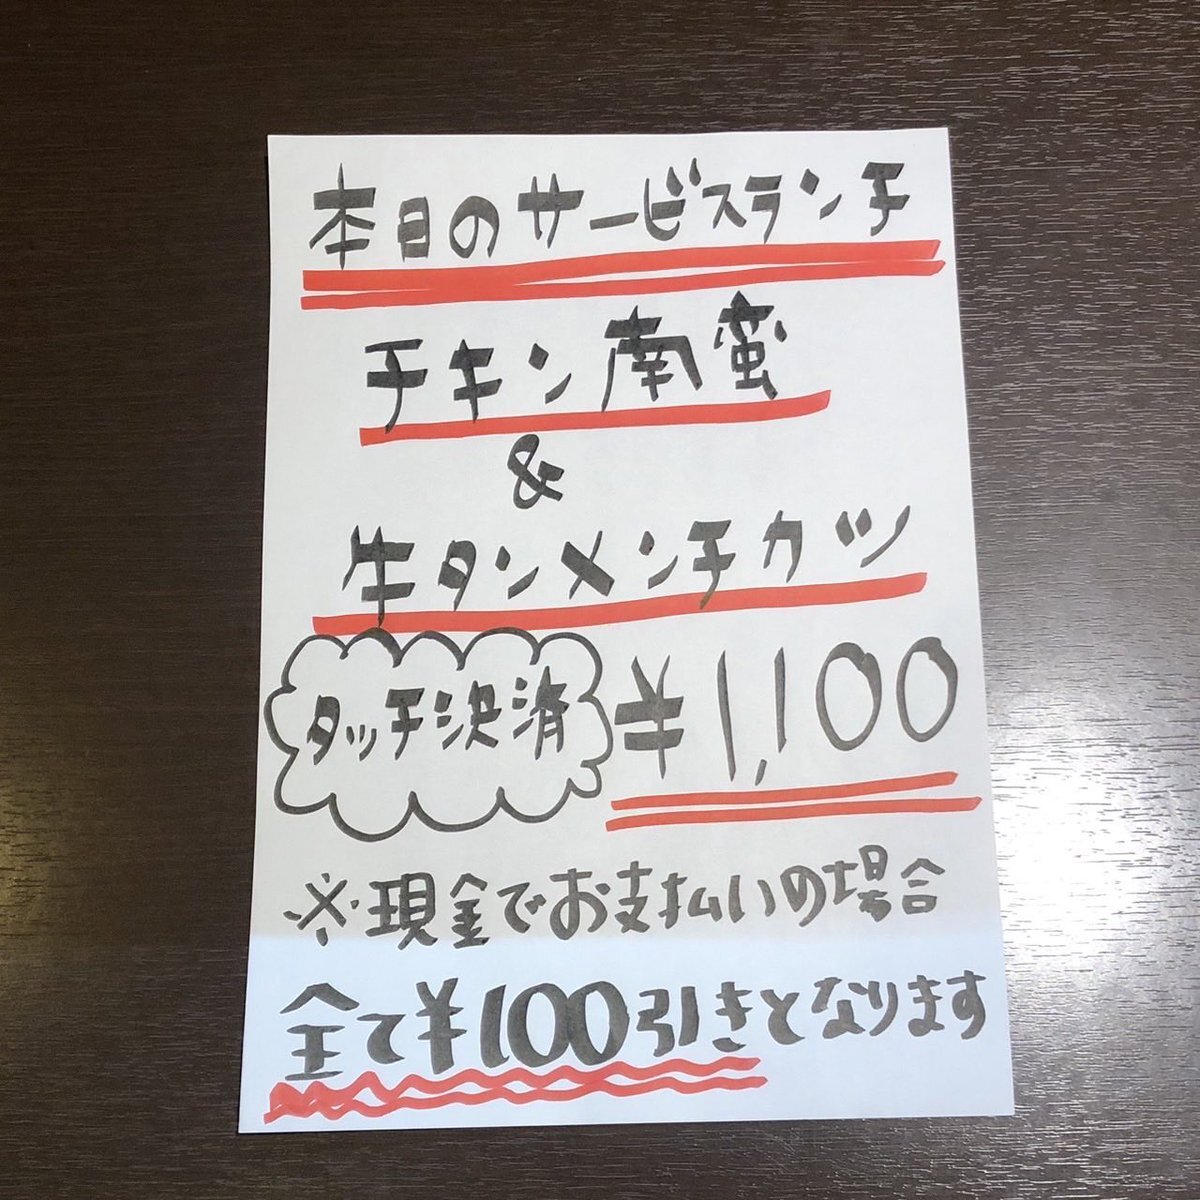 本日のサービスランチ
チキン南蛮
&
牛タンメンチカツ
タッチ決済 ¥1,100
※現金でお支払いの場合
全て¥100引きとなります